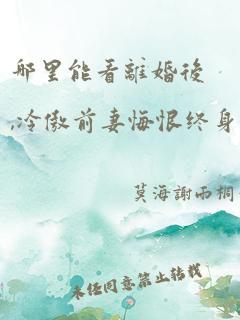 哪里能看離婚後
,冷傲前妻悔恨终身
莫海謝雨桐
未经同意禁止转载